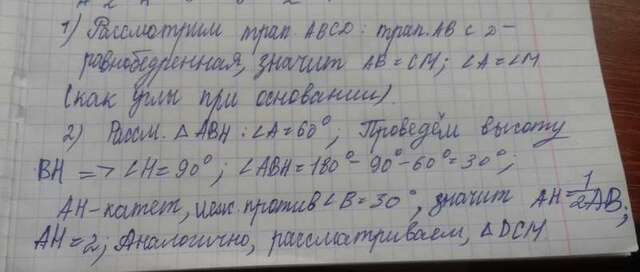 1) Рассмотрим трап. ABCD : трап. ABCD -
равнобедренная, значит AB = CM; ∠A = ∠M
(как углы при основании).
2) Рассм. △ ABH : ∠A = 60°; Проведём высоту
BH => ∠H = 90°; ∠ABH = 180° - 90° - 60° = 30°;
AH - катет, леж. против ∠B = 30°, значит AH = 1/2 AB;
AH = 2; Аналогично, рассматриваем, △ DCM